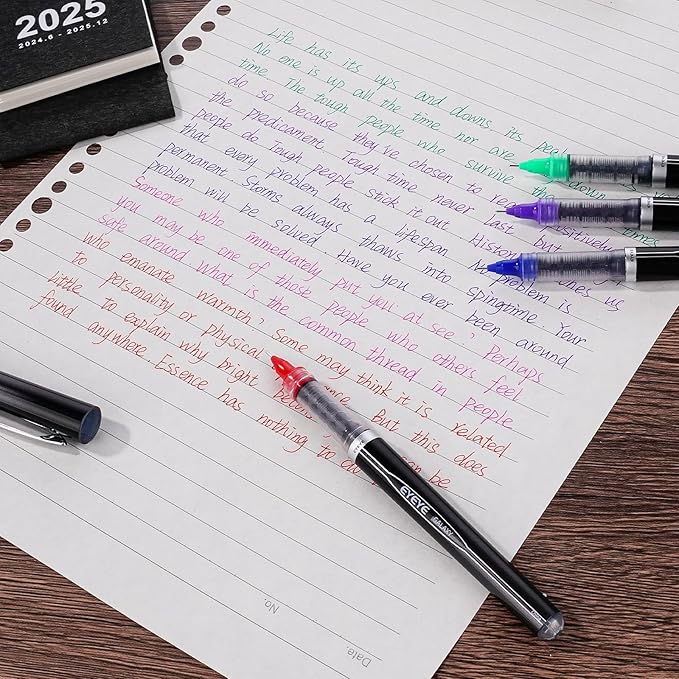 2025
2024.6 - 2025.12
Life has its ups and downs, its pea
No one is up all the time nor are
time. The tough people who survive the down times
do so because they've chosen to rea positively
the predicament. Tough time never last, but
people do Tough people stick it out. Histor ches us
that every problem has a lifespan. No problem is
permanent. Storms always thaws into spingtime. Your
problem will be solved. Have you ever been around
Someone who immediately put you at see, Perhaps
you may be one of those people who others feel
safe around what is the common thread in people
who emanate warmth, Some may think it is related
to personality or physical ance. But this does
Little to explain why bright can be
found anywhere. Essence has nothing to do
EYEYE
GALAXY
No.
Date.